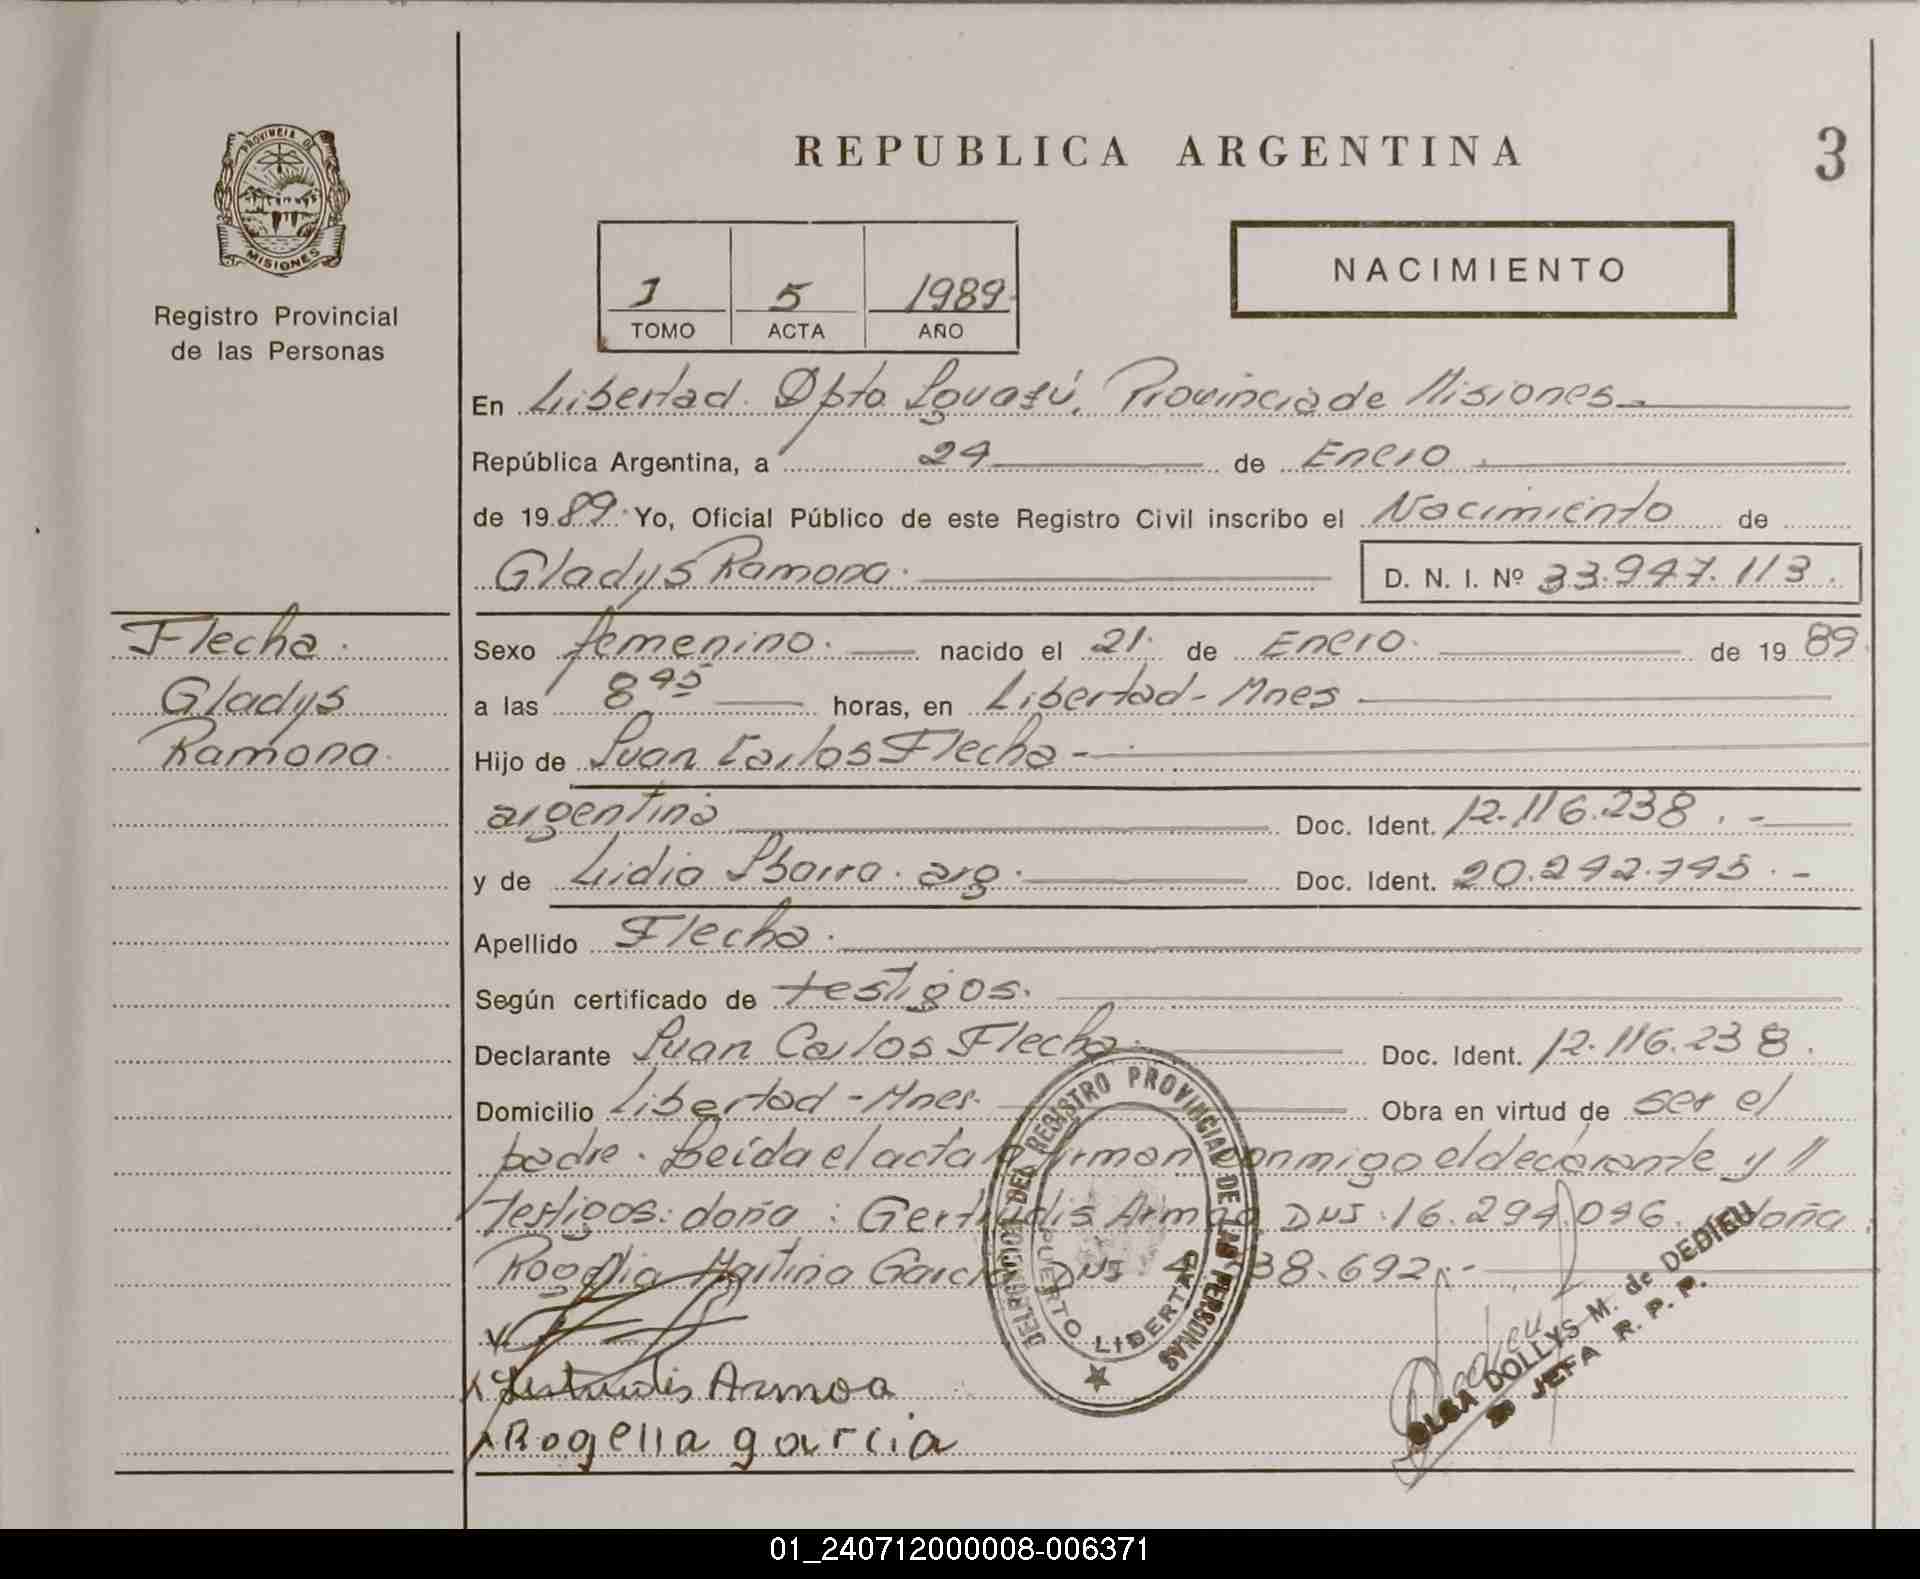 REPUBLICA ARGENTINA
3
PROVINCIA DE
MISIONES
Registro Provincial
de las Personas
1 5 1989
TOMO ACTA AÑO
NACIMIENTO
En Libertad. Dpto Iguazú, Provincia de Misiones
República Argentina, a 24 de Enero
de 1989. Yo, Oficial Público de este Registro Civil inscribo el Nacimiento de
Gladys Ramona. D. N. I. Nº 33.947.113.
Flecha.
Gladys
Ramona.
Sexo femenino. nacido el 21. de Enero. de 1989.
a las 8 45 horas, en Libertad - Mnes
Hijo de Juan Carlos Flecha -
argentina Doc. Ident. 12.116.238. -
y de Lidia Ibarra. arg. Doc. Ident. 20.242.745. -
Apellido Flecha.
Según certificado de testigos.
Declarante Juan Carlos Flecha. Doc. Ident. 12.116.238.
Domicilio Libertad - Mnes. Obra en virtud de ser el
padre. Leída el acta la firman conmigo el declarante y
testigos: doña: Gertrudis Armoa DNI. 16.294.046. doña
Rogelia Martina Garcia DNI 38.692. -
Gertrudis Armoa
Rogelia garcia
DELEGACION DEL REGISTRO PROVINCIAL DE LAS PERSONAS
PUERTO LIBERTAD
OLGA DOLLYS M. de DEDIEU
JEFA R. P. P.
01_240712000008-006371